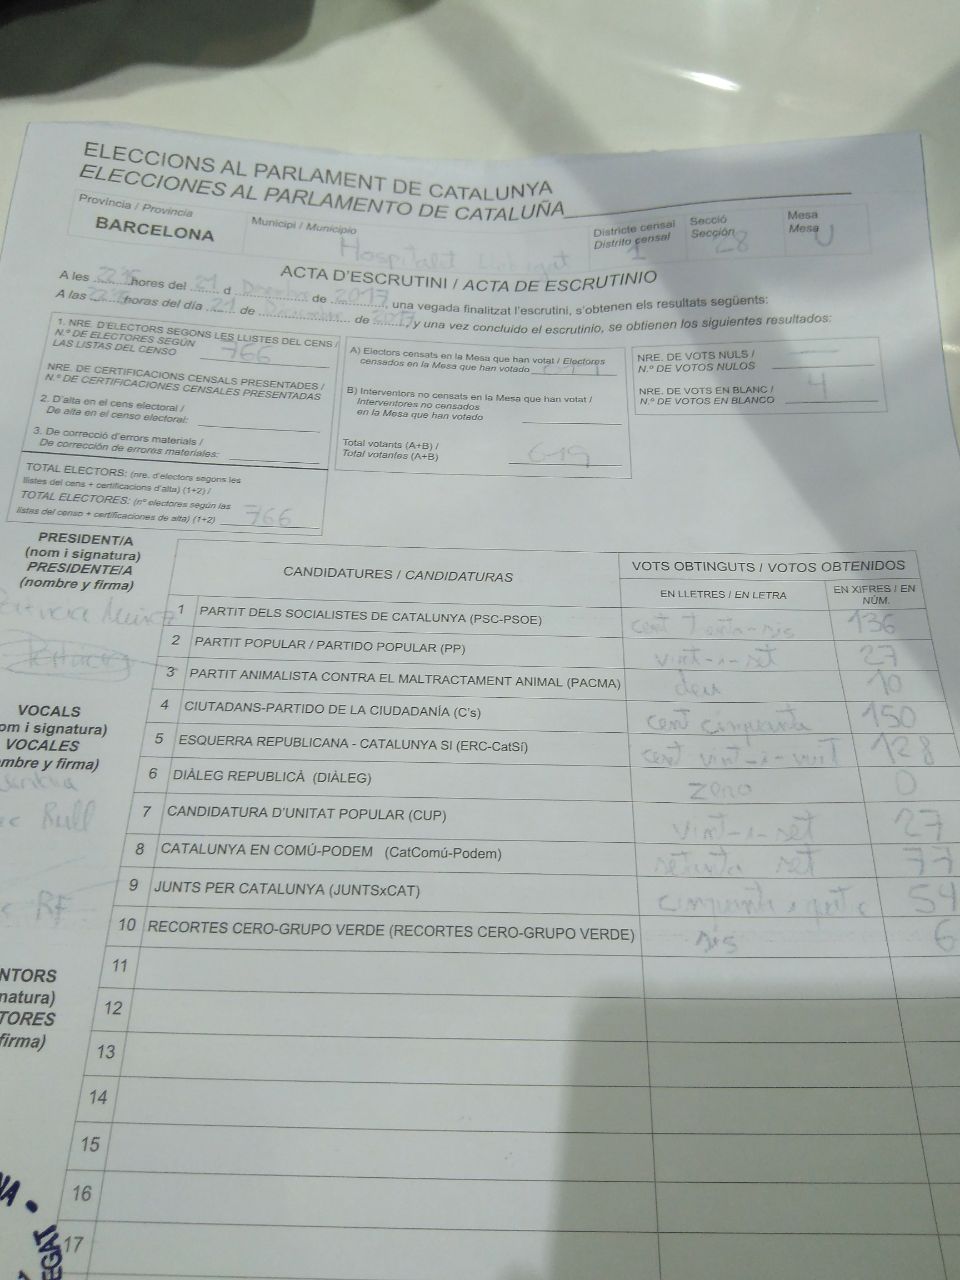 ELECCIONS AL PARLAMENT DE CATALUNYA
ELECCIONES AL PARLAMENTO DE CATALUÑA
Província / Provincia
BARCELONA
Municipi / Municipio
Hospitalet Llobregat
Districte censal
Distrito censal
1
Secció
Sección
28
Mesa
Mesa
U
ACTA D'ESCRUTINI / ACTA DE ESCRUTINIO
A les hores del 21 d Desembre de 2017, una vegada finalitzat l'escrutini, s'obtenen els resultats següents:
A las horas del día 21 de de 2017 y una vez concluido el escrutinio, se obtienen los siguientes resultados:
1. NRE. D'ELECTORS SEGONS LES LLISTES DEL CENS /
N.º DE ELECTORES SEGÚN
LAS LISTAS DEL CENSO 766
NRE. DE CERTIFICACIONS CENSALS PRESENTADES /
N.º DE CERTIFICACIONES CENSALES PRESENTADAS
2. D'alta en el cens electoral /
De alta en el censo electoral:
3. De correcció d'errors materials /
De corrección de errores materiales:
TOTAL ELECTORS: (nre. d'electors segons les
llistes del cens + certificacions d'alta) (1+2) /
TOTAL ELECTORES: (nº electores según las
listas del censo + certificaciones de alta) (1+2) 766
A) Electors censats en la Mesa que han votat / Electores
censados en la Mesa que han votado
B) Interventors no censats en la Mesa que han votat /
Interventores no censados
en la Mesa que han votado
Total votants (A+B) /
Total votantes (A+B) 619
NRE. DE VOTS NULS /
N.º DE VOTOS NULOS
NRE. DE VOTS EN BLANC /
N.º DE VOTOS EN BLANCO 4
PRESIDENT/A
(nom i signatura)
PRESIDENTE/A
(nombre y firma)
VOCALS
om i signatura)
VOCALES
mbre y firma)
Rull
RF
NTORS
natura)
TORES
firma)
CANDIDATURES / CANDIDATURAS
VOTS OBTINGUTS / VOTOS OBTENIDOS
EN LLETRES / EN LETRA
EN XIFRES / EN NÚM.
1 PARTIT DELS SOCIALISTES DE CATALUNYA (PSC-PSOE) cent trenta-sis 136
2 PARTIT POPULAR / PARTIDO POPULAR (PP) vint-i-set 27
3 PARTIT ANIMALISTA CONTRA EL MALTRACTAMENT ANIMAL (PACMA) deu 10
4 CIUTADANS-PARTIDO DE LA CIUDADANÍA (C's) cent cinquanta 150
5 ESQUERRA REPUBLICANA - CATALUNYA SI (ERC-CatSí) cent vint-i-vuit 128
6 DIÀLEG REPUBLICÀ (DIÀLEG) zero 0
7 CANDIDATURA D'UNITAT POPULAR (CUP) vint-i-set 27
8 CATALUNYA EN COMÚ-PODEM (CatComú-Podem) setanta set 77
9 JUNTS PER CATALUNYA (JUNTSxCAT) cinquanta i quatre 54
10 RECORTES CERO-GRUPO VERDE (RECORTES CERO-GRUPO VERDE) sis 6
11
12
13
14
15
16
17